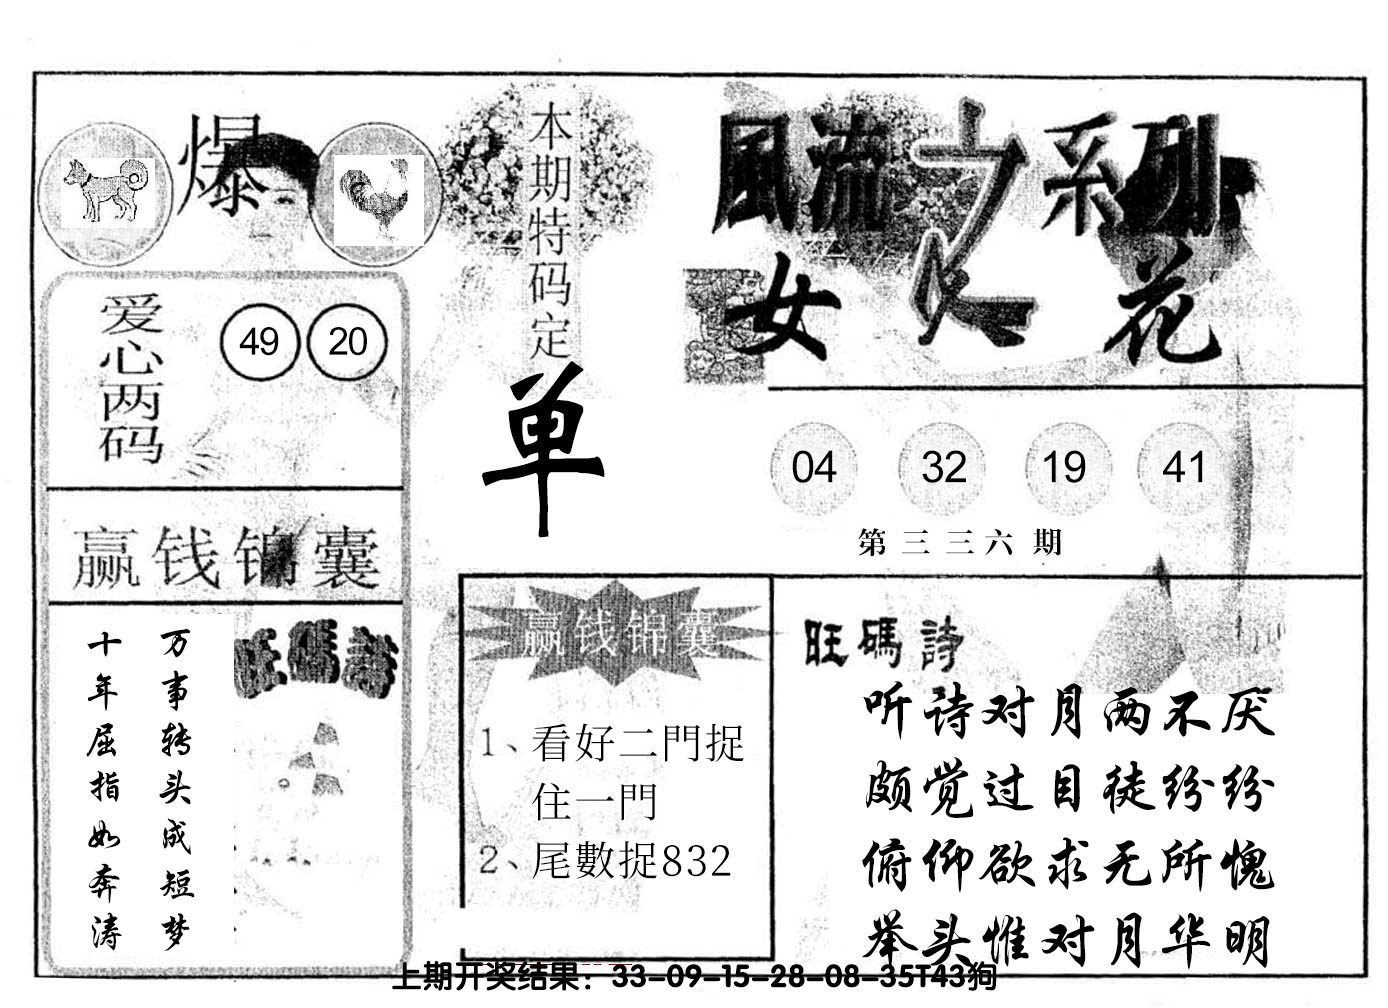 爆
本期特码定
单
風流之系列
女人花
爱心两码
49 20
04 32 19 41
第三三六期
赢钱锦囊
万事转头成短梦
十年屈指如奔涛
旺碼詩
赢钱锦囊
1、看好二門捉
住一門
2、尾數捉832
旺碼詩
听诗对月两不厌
颇觉过目徒纷纷
俯仰欲求无所愧
举头惟对月华明
上期开奖结果：33-09-15-28-08-35T43狗